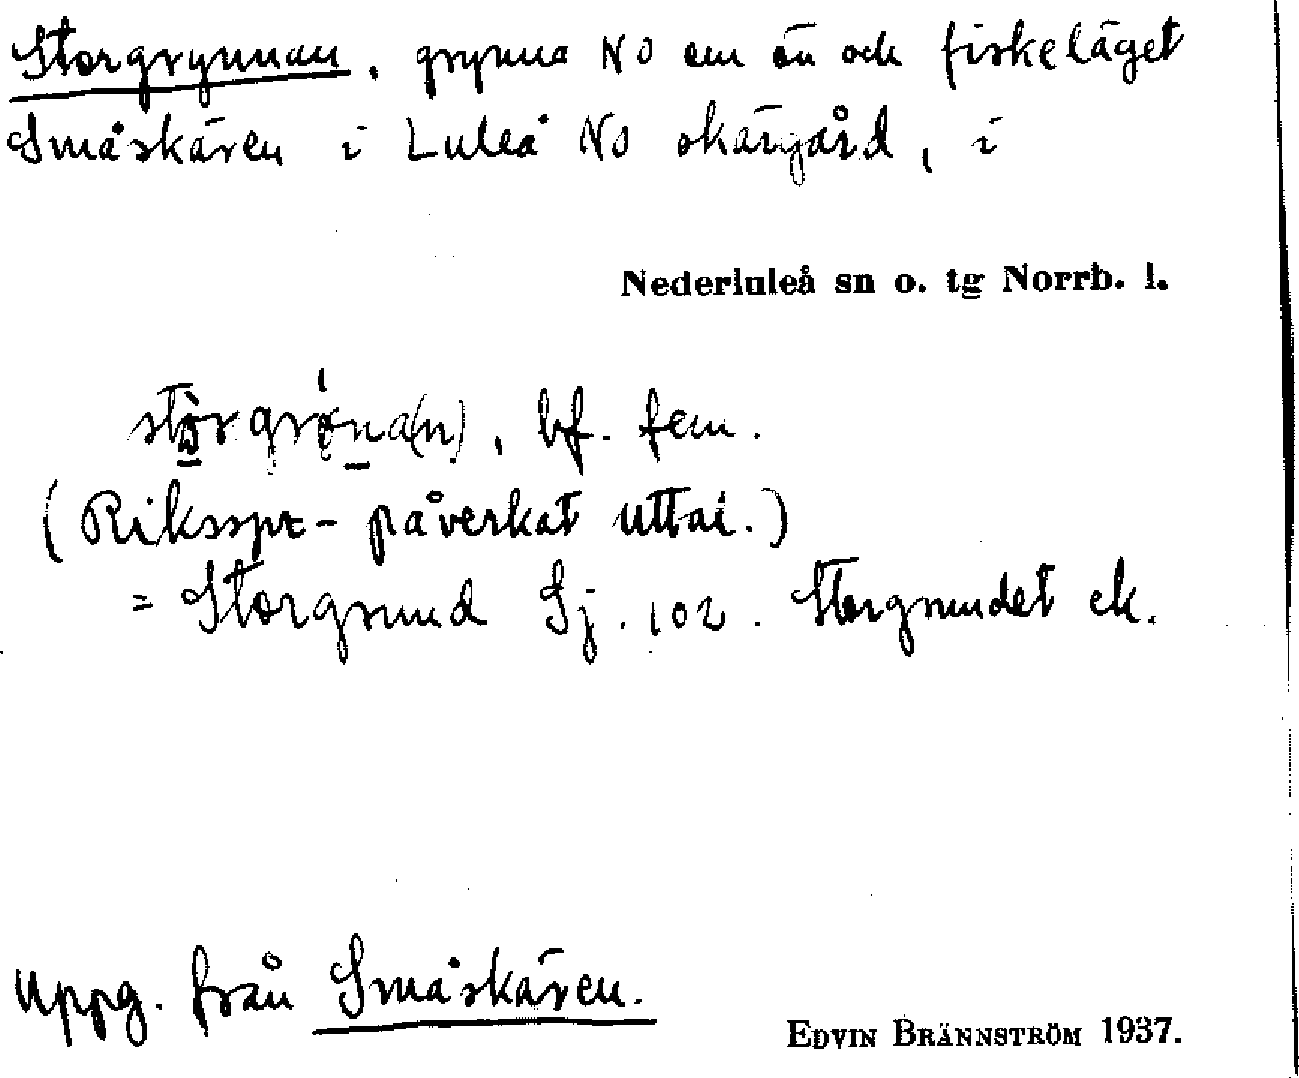 Storgrynnan, grynna NO om ön och fiskeläget
Småskären i Luleå NO skärgård, i
Nederluleå sn o. tg Norrb. l.
stòrgrö́na(n), bf. fem.
(Riksspr-påverkat uttal.)
= Storgrund Sj. 102. Storgrundet ek.
Uppg. från Småskären.
EDVIN BRÄNNSTRÖM 1937.